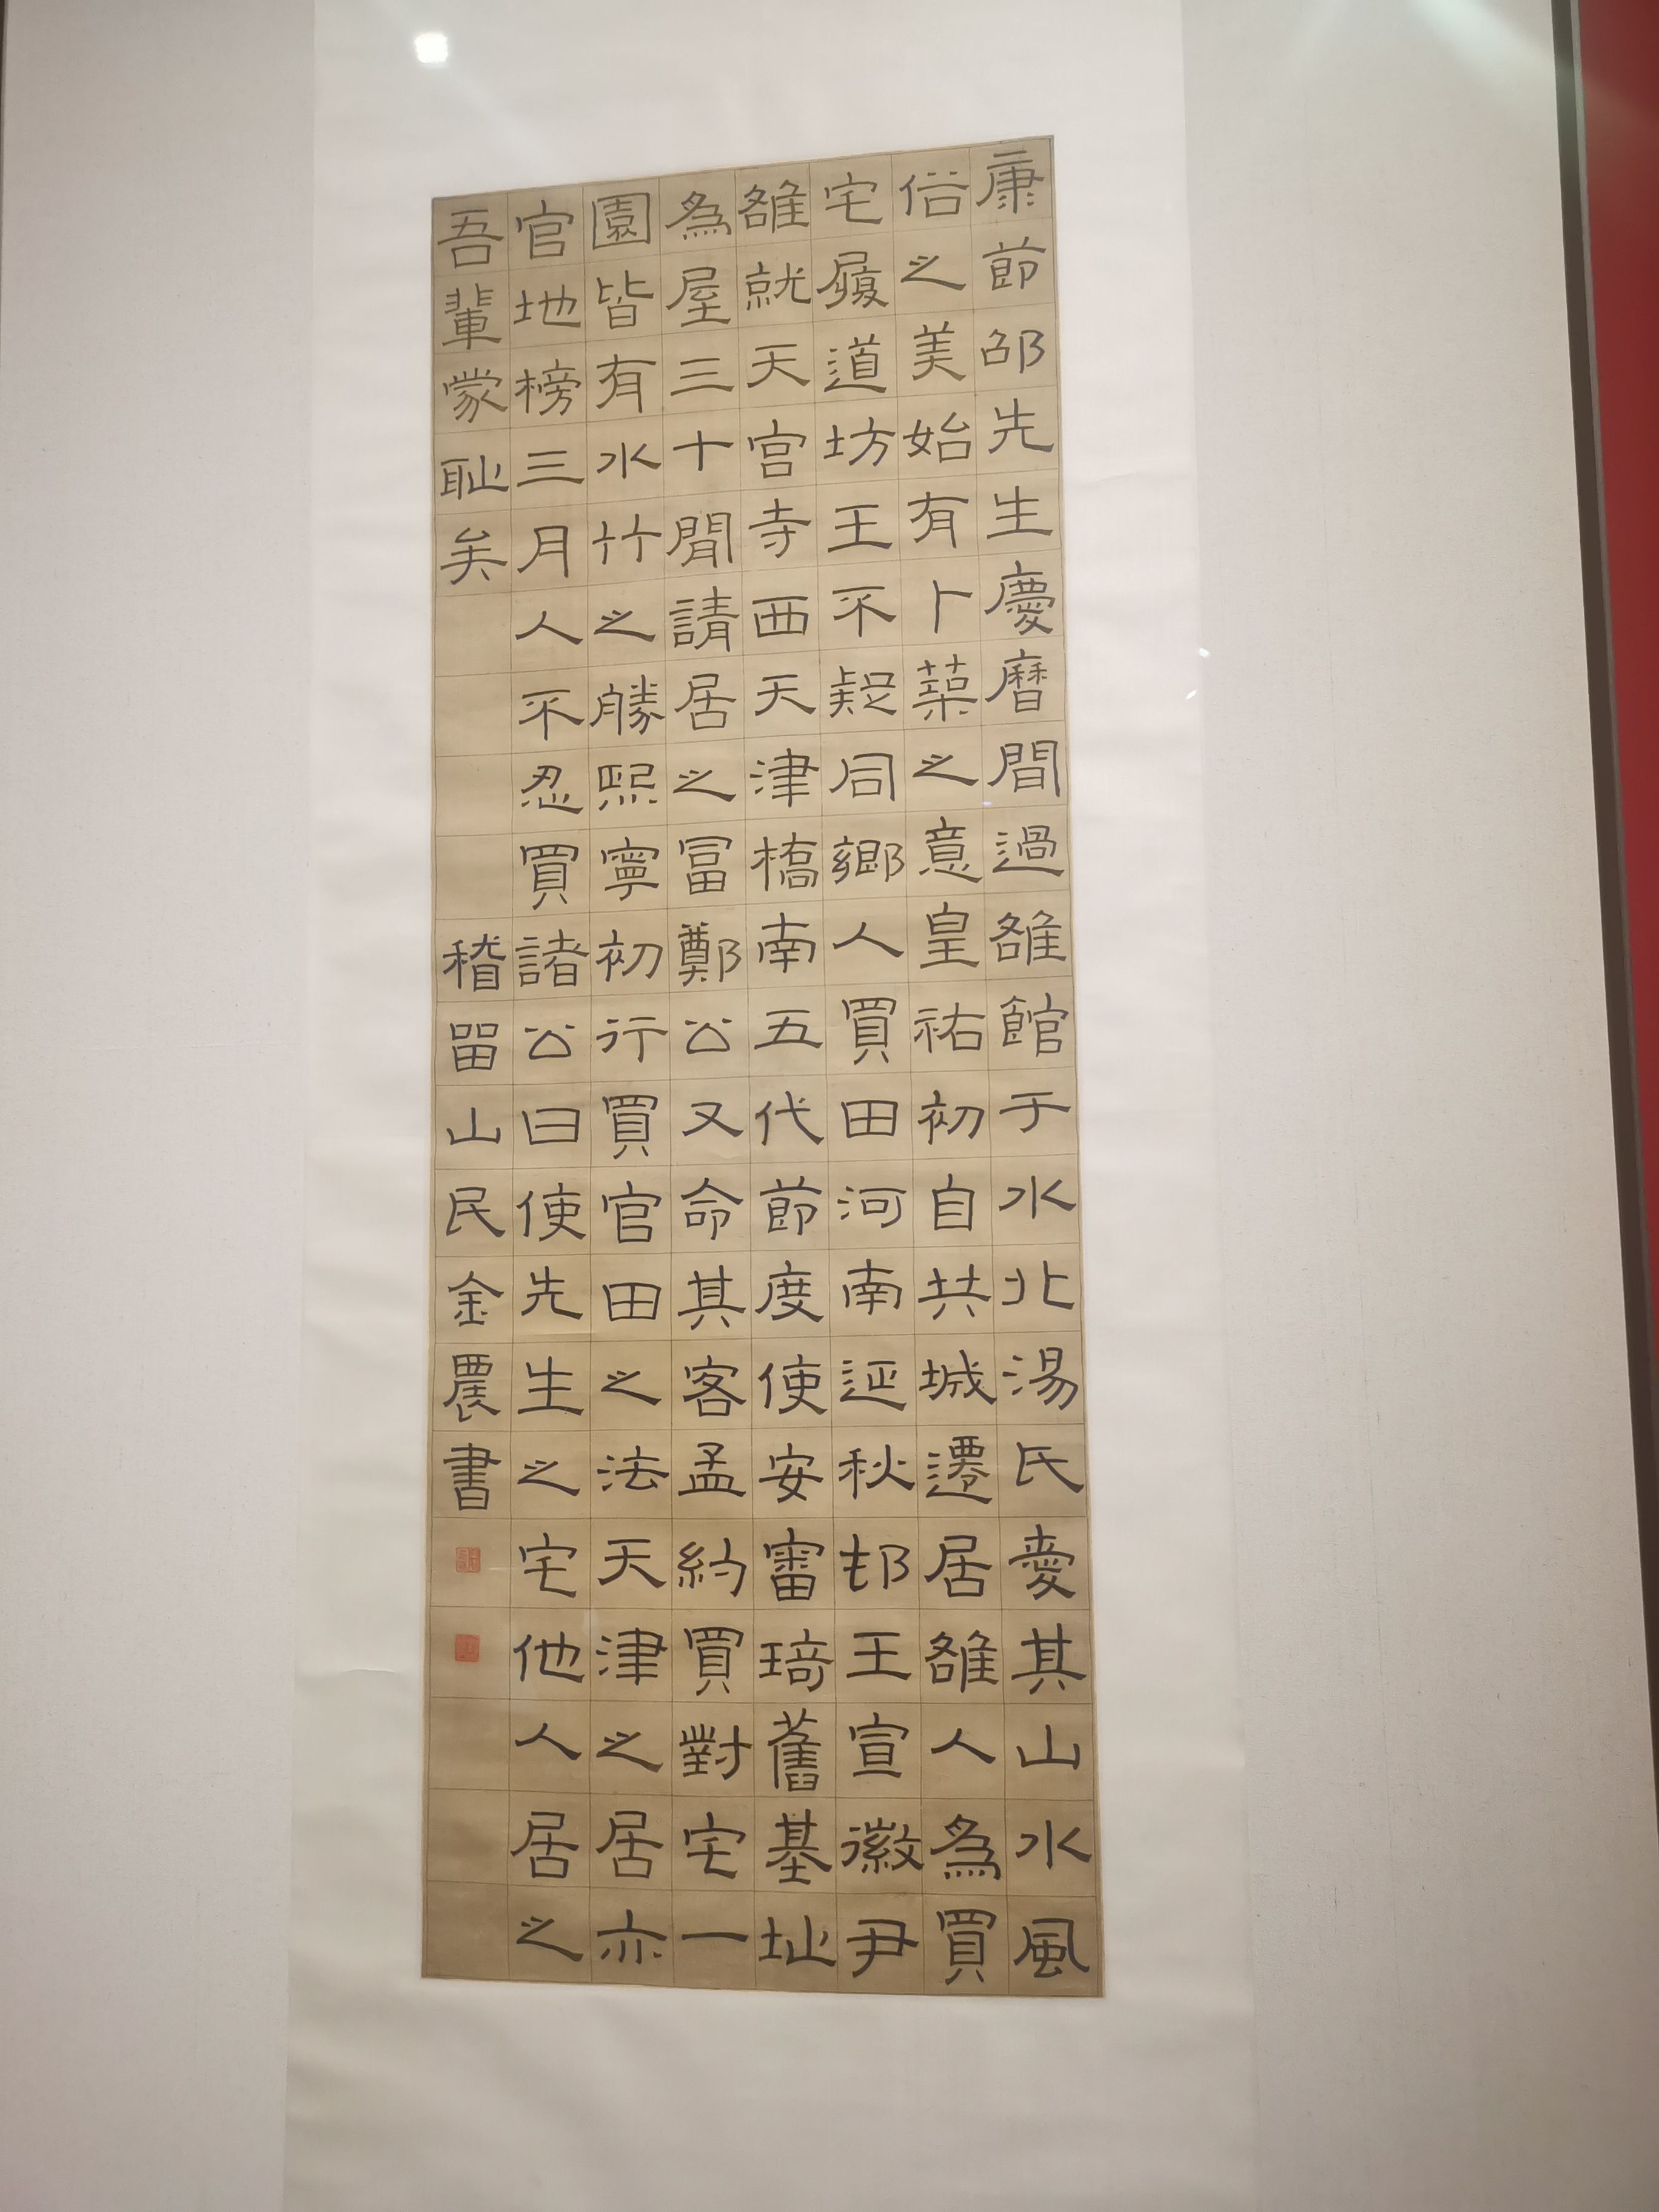 康節邵先生慶曆間過雒館于水北湯氏愛其山水風
俗之美始有卜築之意皇祐初自共城遷居雒人為買
宅履道坊王不疑同鄉人買田河南延秋邨王宣徽尹
雒就天宮寺西天津橋南五代節度使安審琦舊基址
為屋三十間請居之冨鄭公又命其客孟約買對宅一
園皆有水竹之勝熙寧初行買官田之法天津之居亦
官地榜三月人不忍買諸公曰使先生之宅他人居之
吾輩蒙耻矣
稽留山民金農書